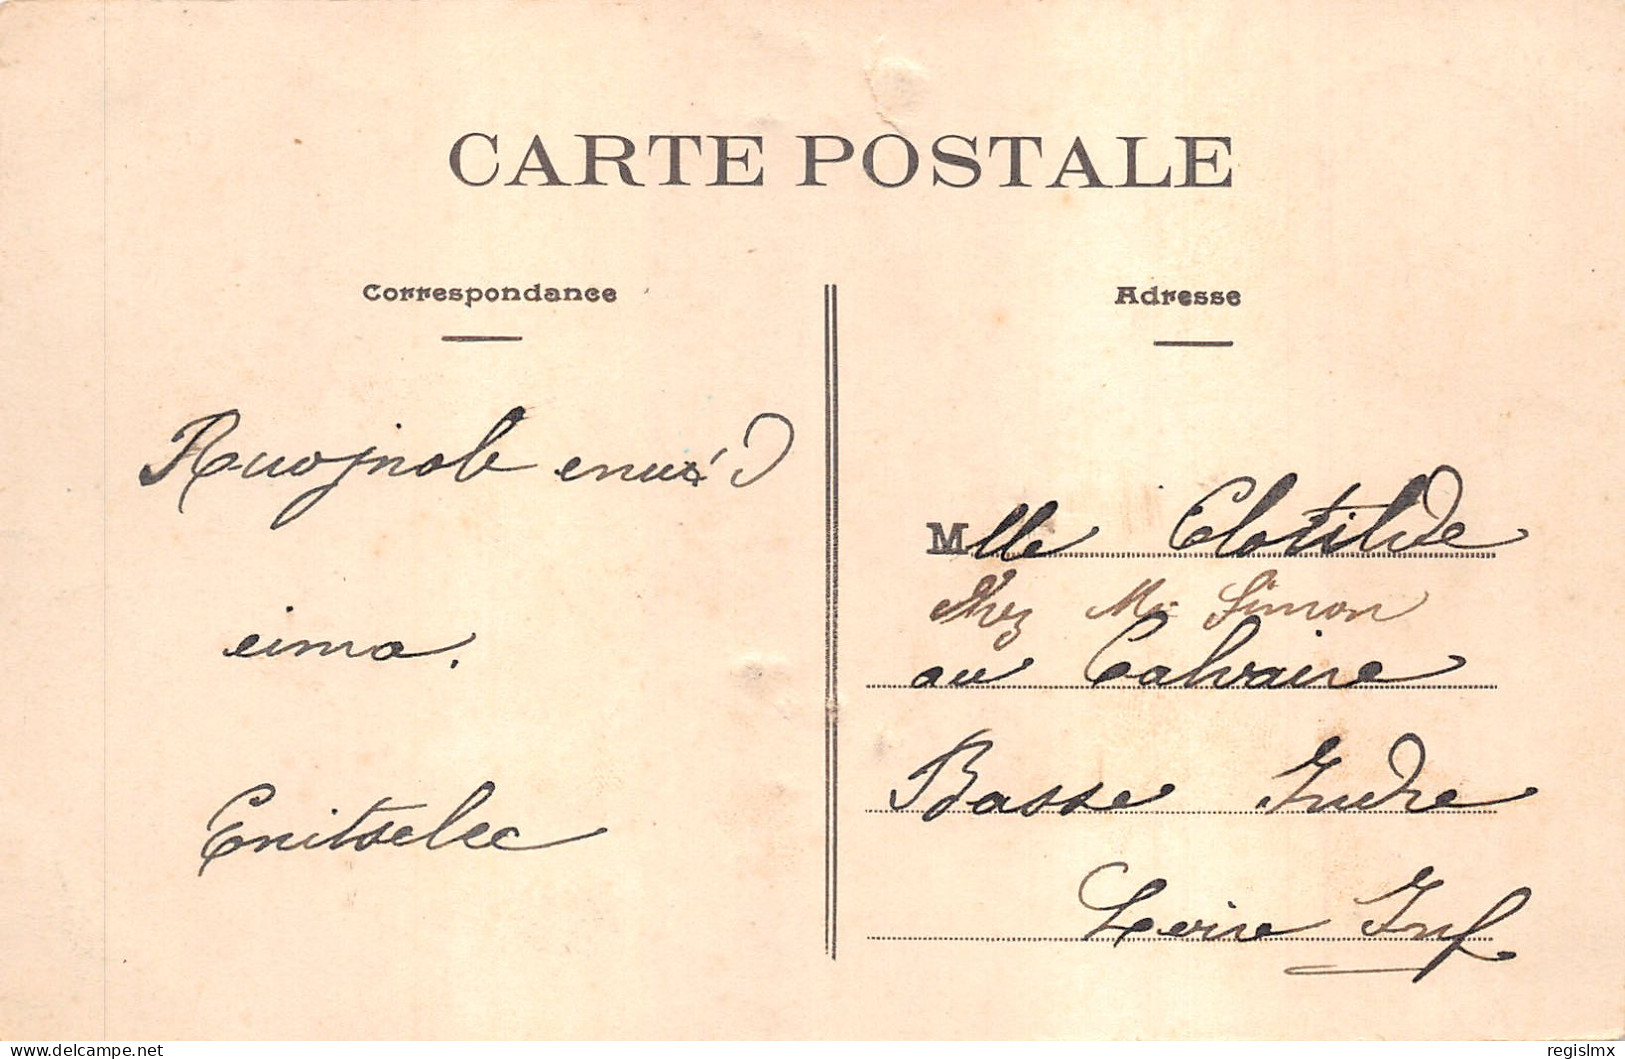 CARTE POSTALE
Correspondance
Ruojnob enu'D
eima.
Enitselec
Adresse
Mlle Clotilde
Chez Mr Simon
au Calvaire
Basse Indre
Loire Inf
regislmx
DELCAMPE.NET